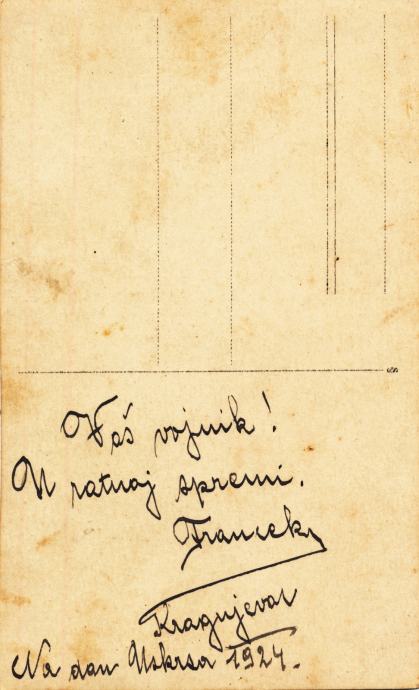 Vaš vojnik!
U ratnoj spremi.
Francek
Kragujevac
Na dan Uskrsa 1924.